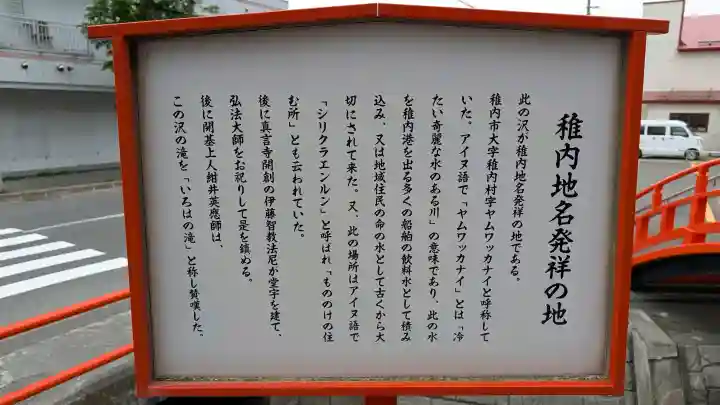 稚内地名発祥の地
此の沢が稚内地名発祥の地である。
稚内市大字稚内村字ヤムワッカナイと呼称して
いた。アイヌ語で「ヤムワッカナイ」とは「冷
たい奇麗な水のある川」の意味であり、此の水
を稚内港を出る多くの船舶の飲料水として積み
込み、又は地域住民の命の水として古くから大
切にされて来た。又、此の場所はアイヌ語で
「シリクラエンルン」と呼ばれ「もののけの住
む所」とも云われていた。
後に真言寺開創の伊藤智教法尼が堂宇を建て、
弘法大師をお祀りして是を鎮める。
後に開基上人紺井英應師は、
この沢の滝を「いろはの滝」と称し賛嘆した。